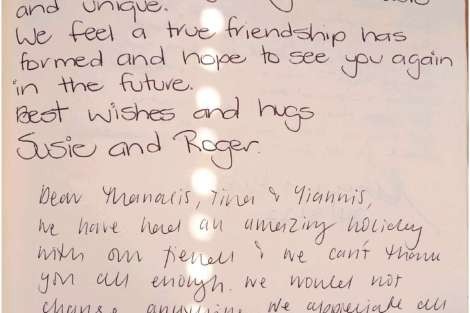 and unique.
We feel a true friendship has
formed and hope to see you again
in the future.
Best wishes and hugs
Susie and Roger.
Dear Thanasis, Tina & Yiannis,
we have had an amazing holiday
with our friends & we can't thank
you all enough. we would not
change anything we appreciate all